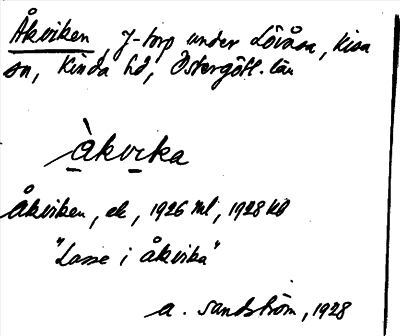 Åkviken, f-torp under Lövåsa, Kisa
sn, Kinda hd, Östergötl. län
àkvika
Åkviken, ek, 1926 Ml, 1928 KB
"Lasse i Åkvika"
A. Sandström, 1928